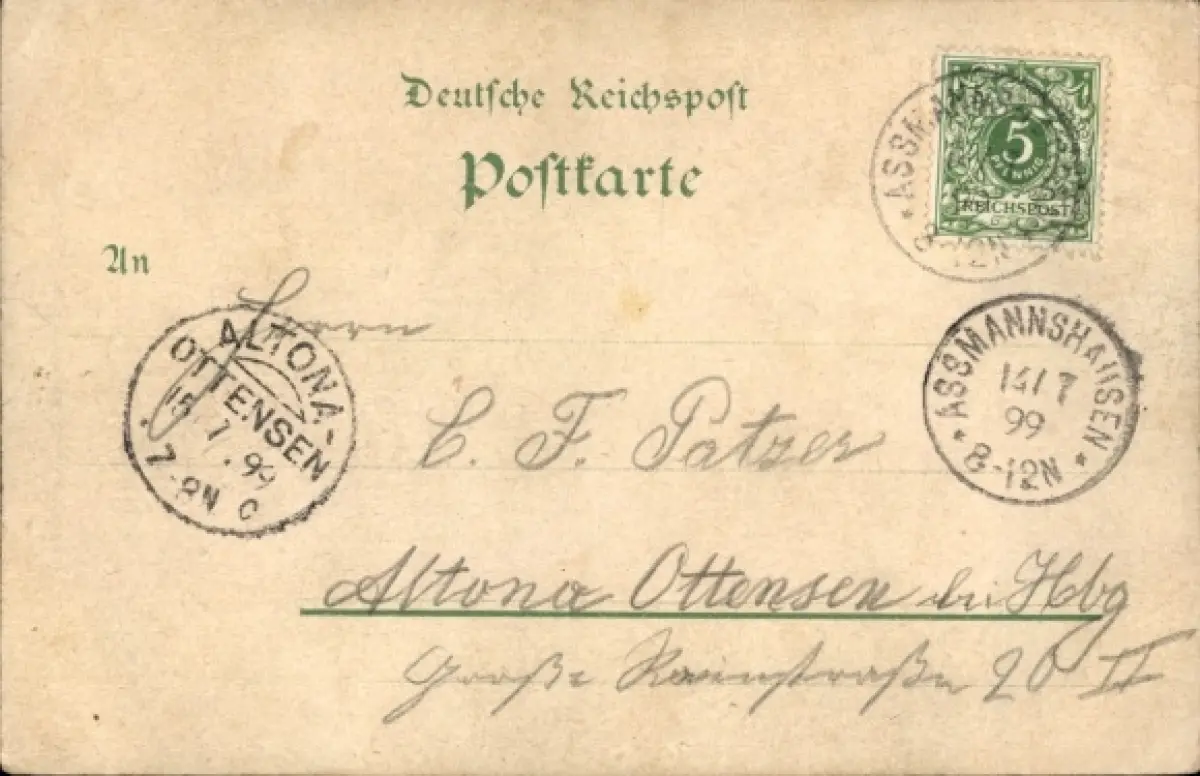 Deutsche Reichspost
Postkarte
An
ASSMANNSHAUSEN
8-12N
5
PFENNIG
REICHSPOST
Herrn
ALTONA-
OTTENSEN
15 7.99
7-8N
C
ASSMANNSHAUSEN
14/7
99
8-12N
C. F. Patzer
Altona Ottensen bei Hbg
Große Rainstraße 20 II